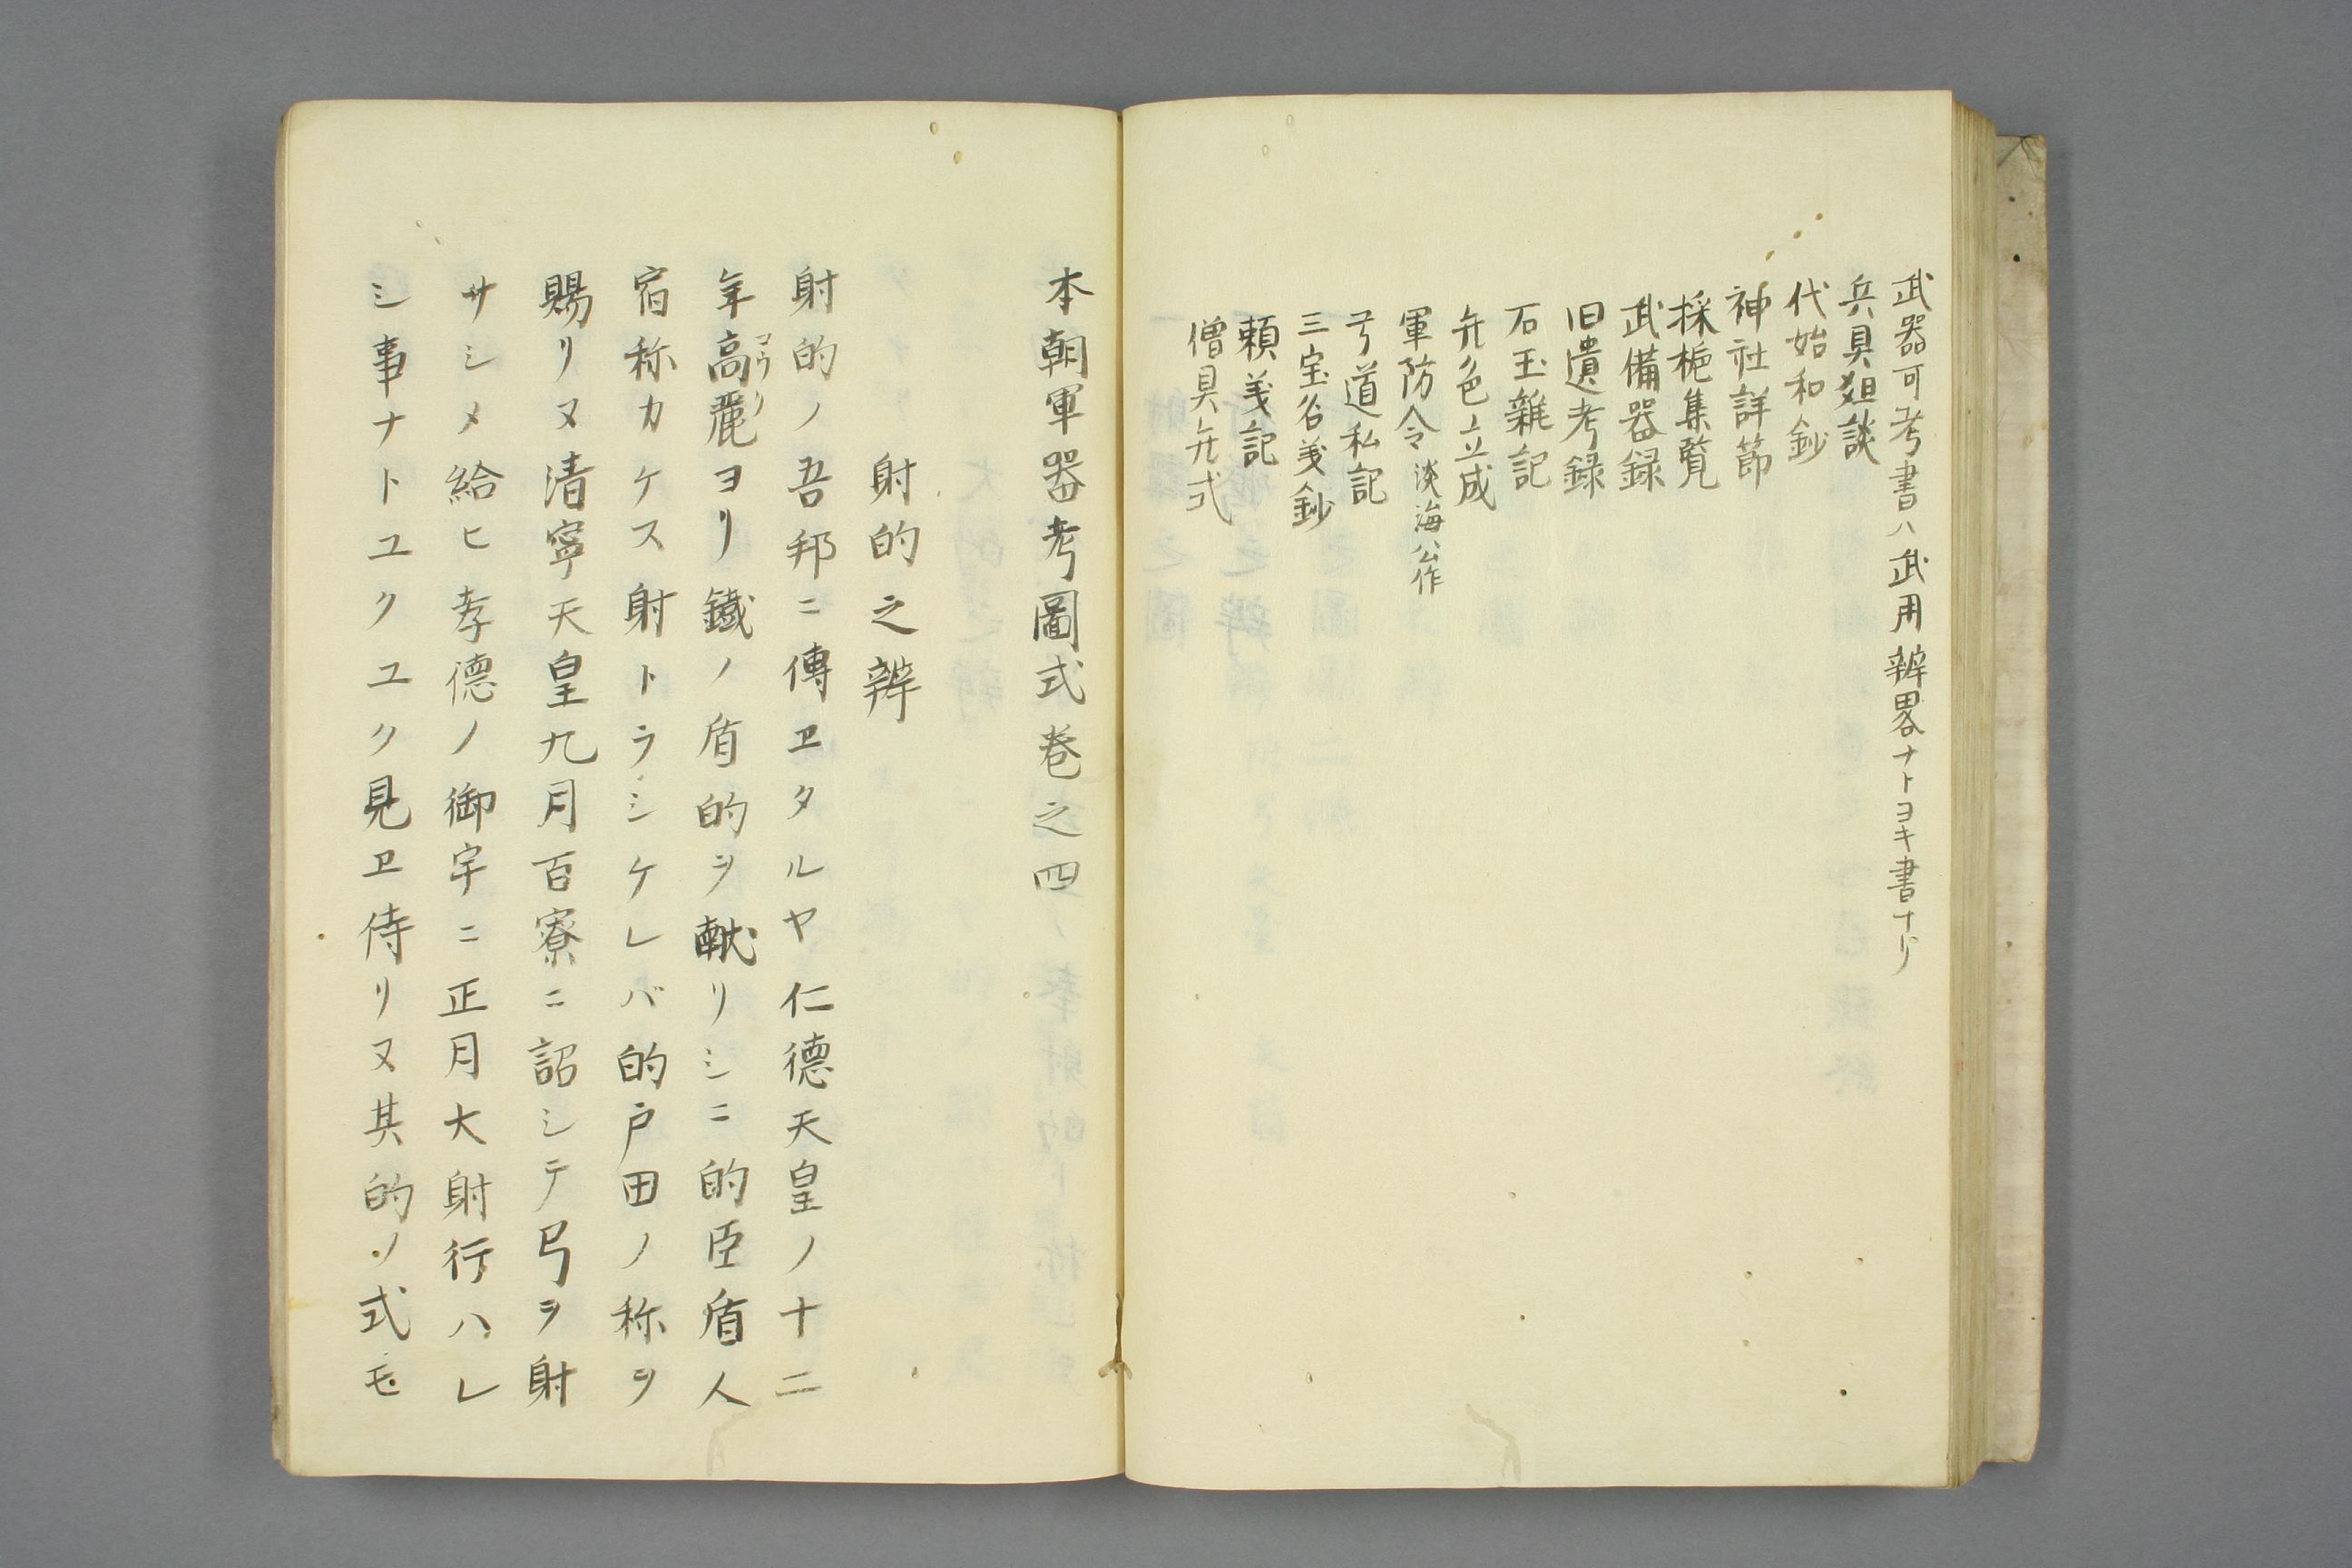 武器可考書ハ武用辨畧ナトヨキ書ナリ
兵具爼談
代始和鈔
神社詳節
採桅集覧
武備器録
旧遺考録
石玉雜記
弁色立成
軍防令 淡海公作
弓道私記
三宝名義鈔
頼義記
僧具弁式
本朝軍器考圖式巻之四
射的之辨
射的ノ吾邦ニ傳ヱタルヤ仁德天皇ノ十二
年高麗コウリヨリ鐡ノ盾的ヲ献リシニ的臣盾人
宿称カケス射トラシケレバ的戸田ノ称ヲ
賜リヌ清寧天皇九月百寮ニ詔シテ弓ヲ射
サシメ給ヒ孝德ノ御宇ニ正月大射行ハレ
シ事ナトユクユク見ヱ侍リヌ其的ノ式モ